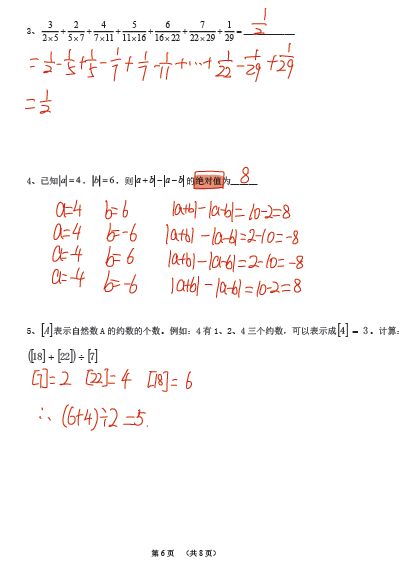 3、3/(2×5) + 2/(5×7) + 4/(7×11) + 5/(11×16) + 6/(16×22) + 7/(22×29) + 1/29 = 1/2
= 1/2 - 1/5 + 1/5 - 1/7 + 1/7 - 1/11 + ... + 1/22 - 1/29 + 1/29
= 1/2
4、已知|a|=4，|b|=6，则|a+b|-|a-b|的绝对值为 8
a=4 b=6 |a+b|-|a-b|=10-2=8
a=4 b=-6 |a+b|-|a-b|=2-10=-8
a=-4 b=6 |a+b|-|a-b|=2-10=-8
a=-4 b=-6 |a+b|-|a-b|=10-2=8
5、[A]表示自然数A的约数的个数。例如：4有1、2、4三个约数，可以表示成[4]=3。计算：
([18]+[22])÷[7]
[7]=2 [22]=4 [18]=6
∴(6+4)÷2=5.
第6页 （共8页）